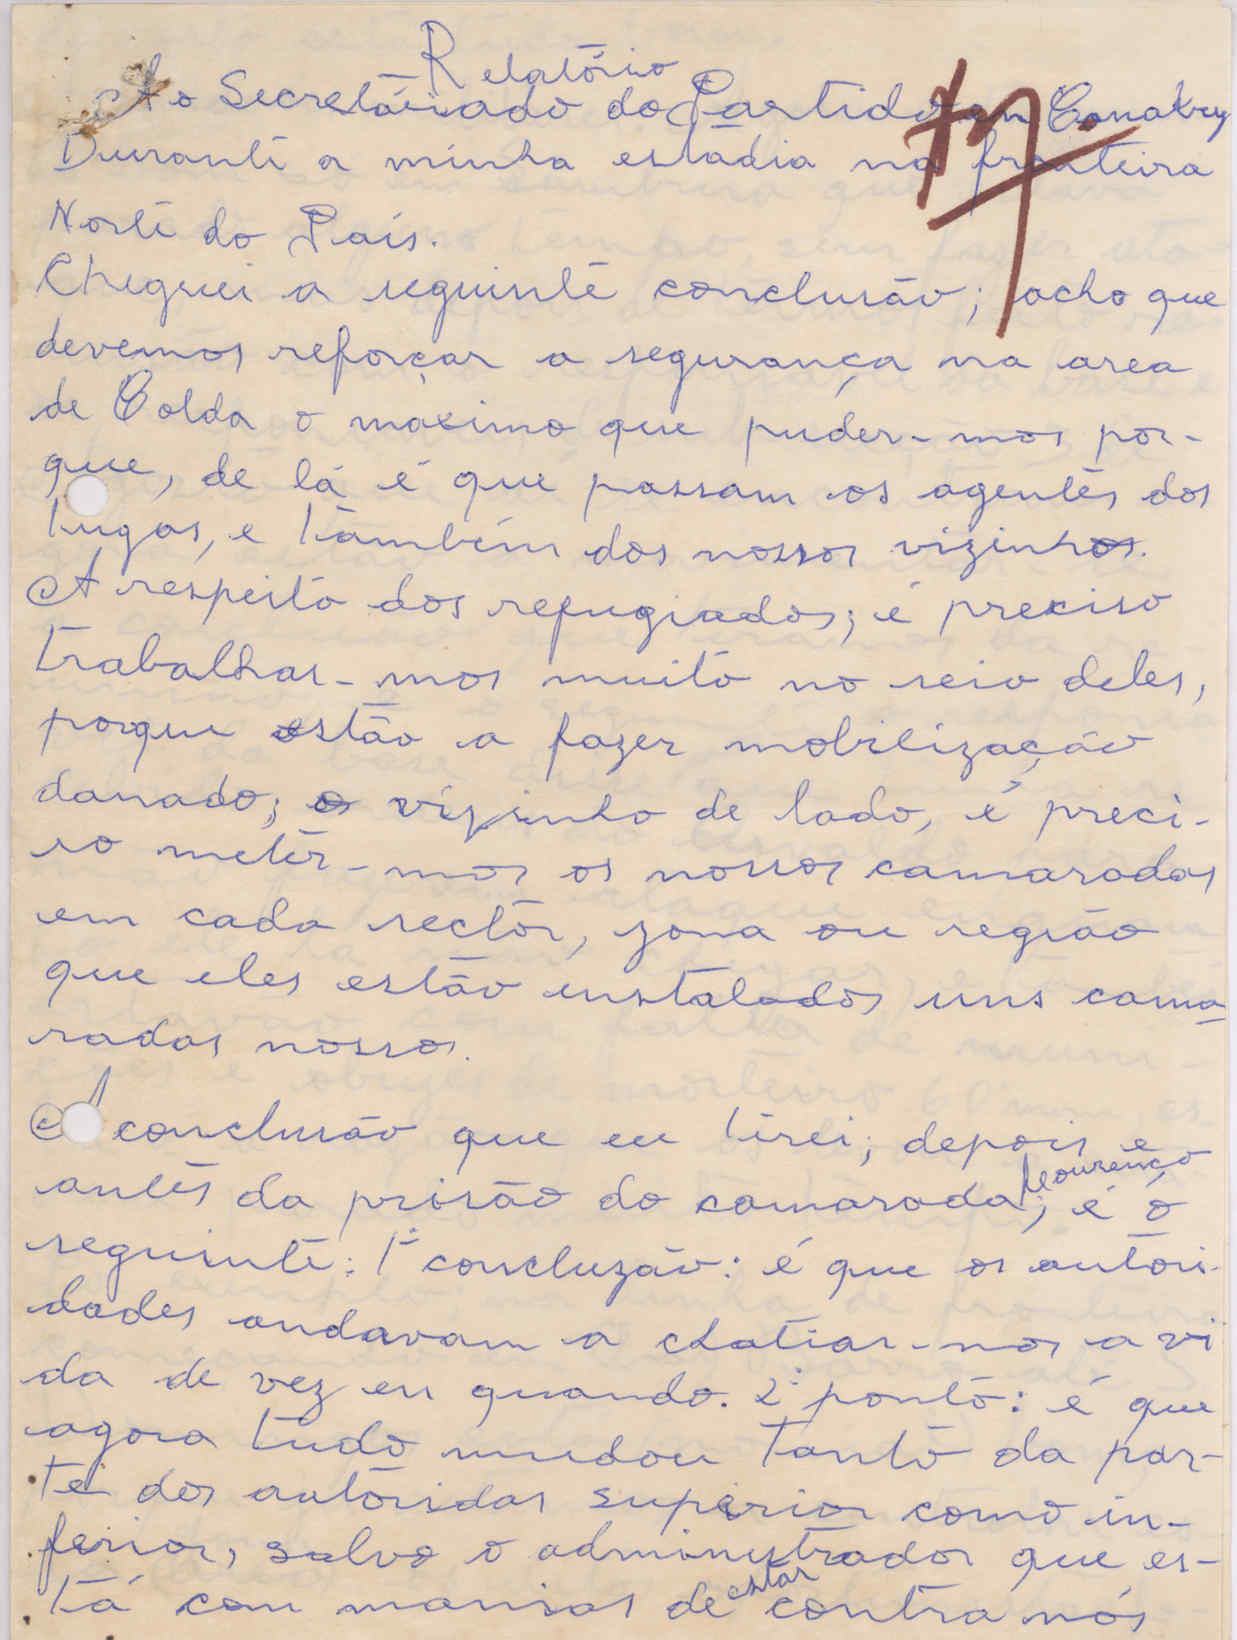 Relatório
Ao Secretáriado do Partido en Conakry
Durante a minha estádia na fronteira
Norte do País.
Cheguei a seguinte conclusão; acho que
devemos reforçar a segurança na area
de Colda o maximo que puder-mos por-
que, de lá é que passam os agentes dos
tugas, e também dos nossos vizinhos.
A respeito dos refugiados; é preciso
trabalhar-mos muito no seio deles,
porque estão a fazer mobilização
danado; o vizinho de lado, é preci-
so meter-mos os nossos camaradas
em cada sector, zona ou região
que eles estão instalados uns cama-
radas nossos.
A conclusão que eu tirei; depois e
antes da prisão do camarada Lourenço; é o
seguinte: 1º concluzão: é que os autori-
dades andavam a chatiar-nos a vi
da de vez en quando. 2º ponto: é que
agora tudo mudou tanto da par-
te dos autóridas superior como in-
ferior, salvo o administrador que es-
tá com manias de estar contra nós